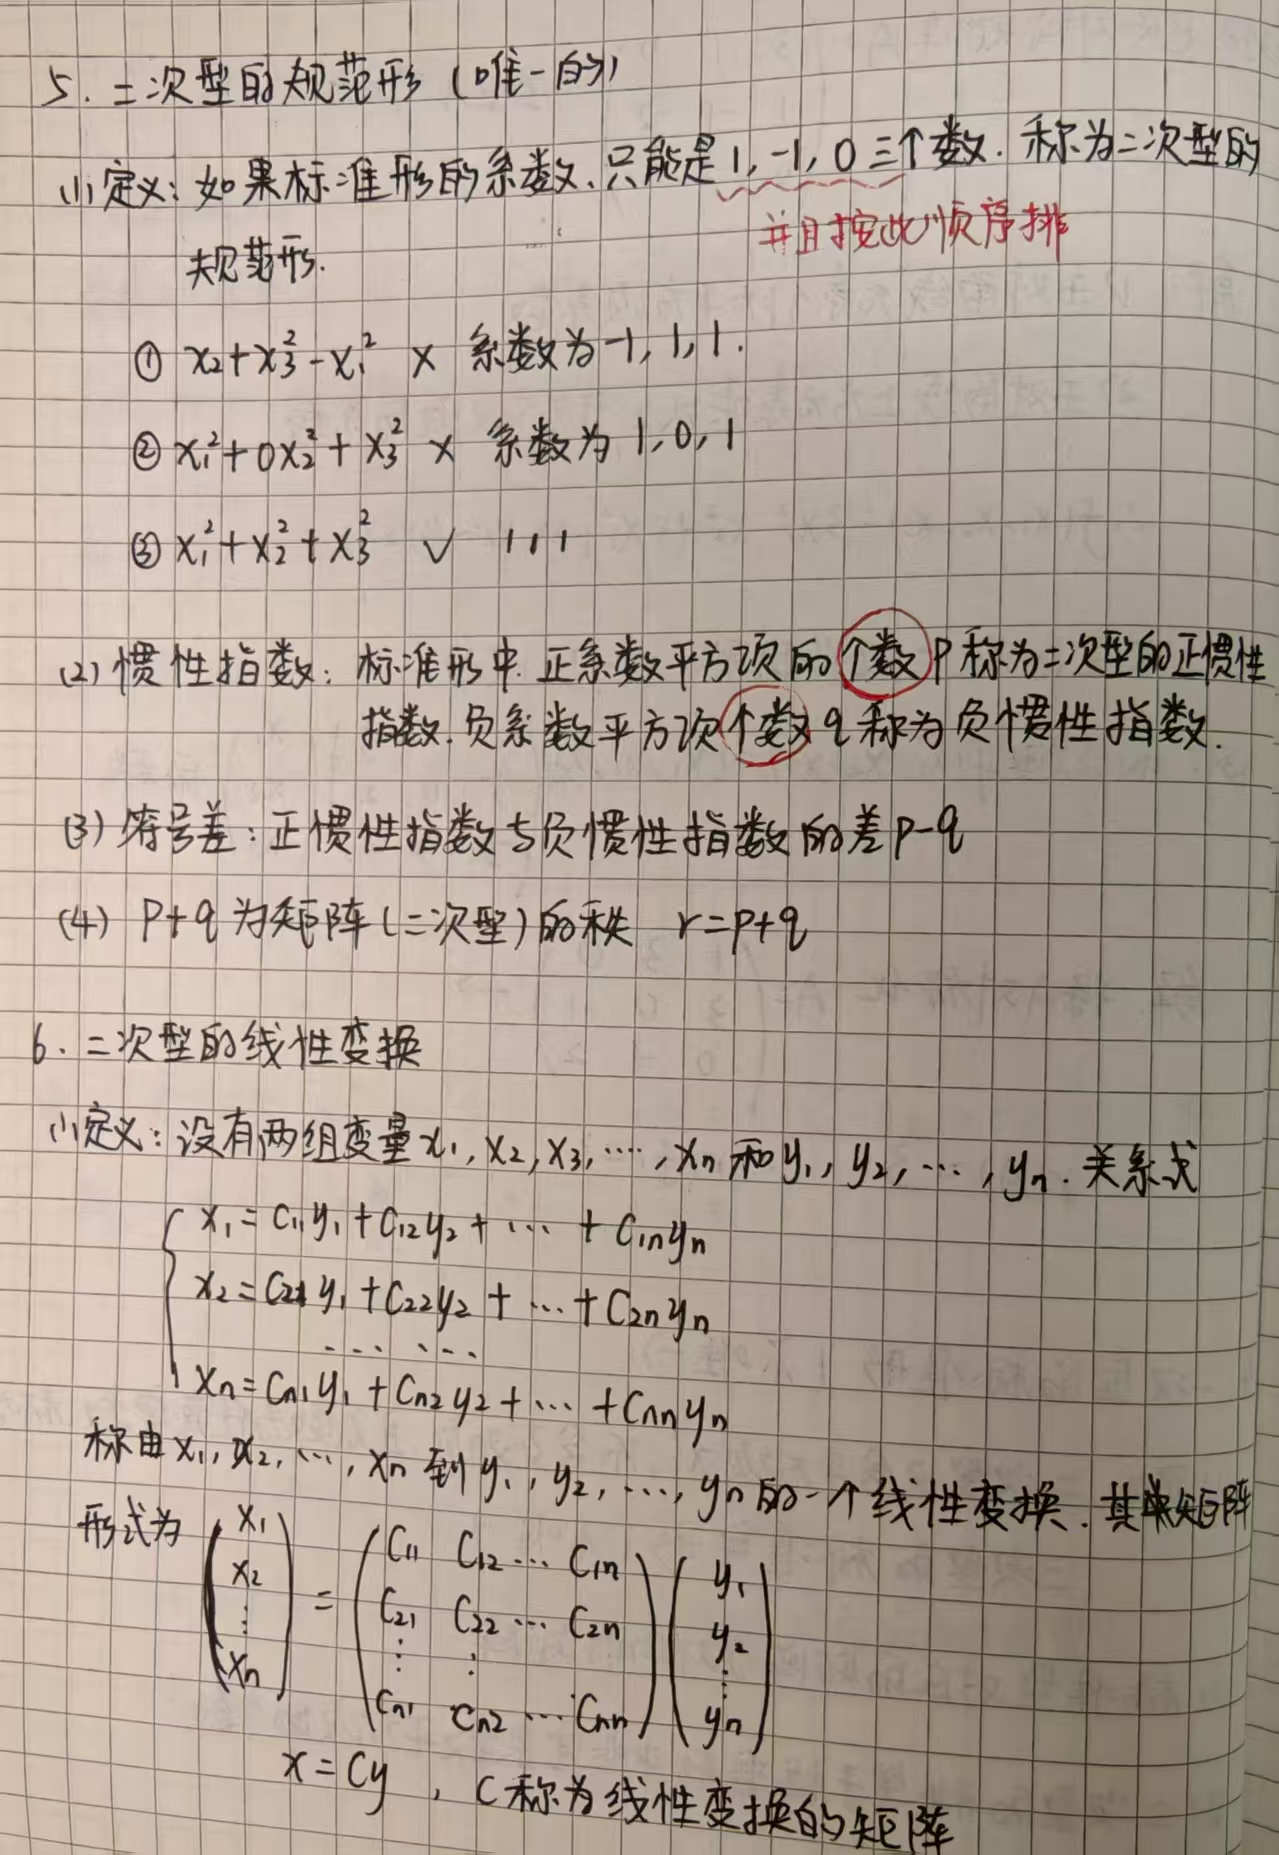 5. 二次型的规范形 (唯一的)
(1) 定义: 如果标准形的系数、只能是 1, -1, 0 三个数. 称为二次型的
并且按此顺序排
规范形.
① x₂+x₃²-x₁² × 系数为 -1, 1, 1.
② x₁²+0x₂²+x₃² × 系数为 1, 0, 1
③ x₁²+x₂²+x₃² √ 1 1 1
(2) 惯性指数: 标准形中. 正系数平方项的个数 P 称为二次型的正惯性
指数. 负系数平方项个数 q 称为负惯性指数.
(3) 符号差: 正惯性指数与负惯性指数的差 P-q
(4) P+q 为矩阵(二次型)的秩 r=P+q
6. 二次型的线性变换
(1) 定义: 设有两组变量 x₁, x₂, x₃, ⋯, xₙ 和 y₁, y₂, ⋯, yₙ. 关系式
x₁=c₁₁y₁+c₁₂y₂+⋯+c₁ₙyₙ
x₂=c₂₁y₁+c₂₂y₂+⋯+c₂ₙyₙ
⋯ ⋯
xₙ=cₙ₁y₁+cₙ₂y₂+⋯+cₙₙyₙ
称由 x₁, x₂, ⋯, xₙ 到 y₁, y₂, ⋯, yₙ 的一个线性变换. 其矩阵
形式为 (x₁ x₂ ⋮ xₙ) = (c₁₁ c₁₂ ⋯ c₁ₙ
c₂₁ c₂₂ ⋯ c₂ₙ
⋮ ⋮
cₙ₁ cₙ₂ ⋯ cₙₙ) (y₁ y₂ ⋮ yₙ)
x=Cy , C称为线性变换的矩阵